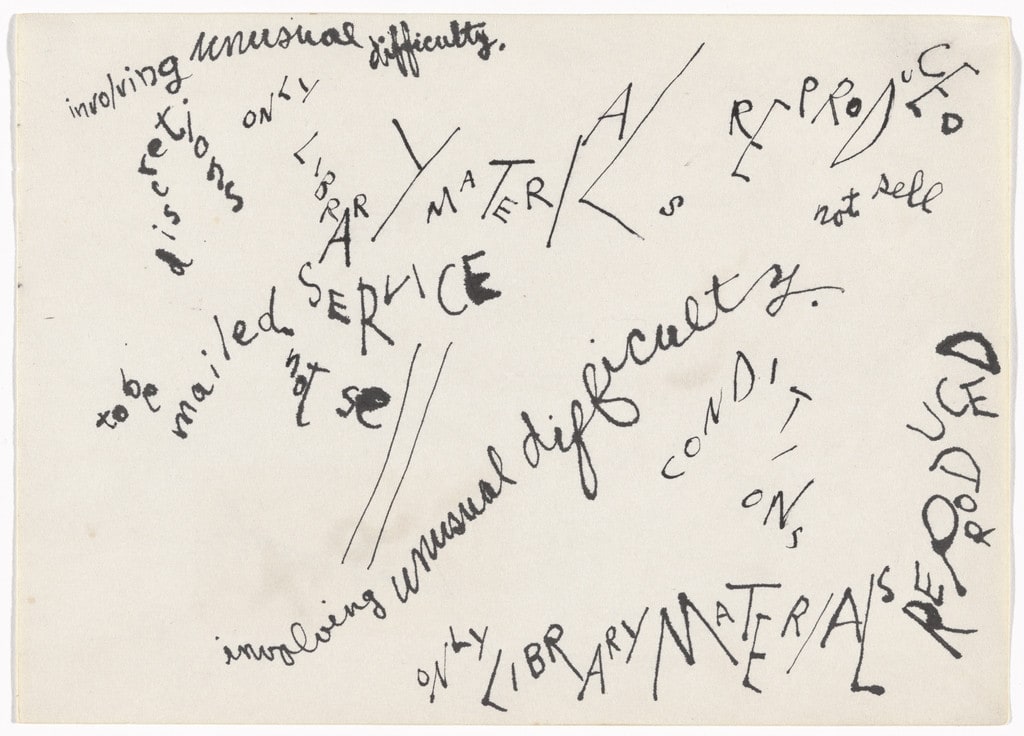 involving unusual difficulty.
discretions
ONLY
LIBRARY MATERIALS
REPRODUCED
not sell
SERVICE
to be mailed.
not se
involving unusual difficulty.
CONDITIONS
ONLY LIBRARY MATERIALS
REPRODUCED